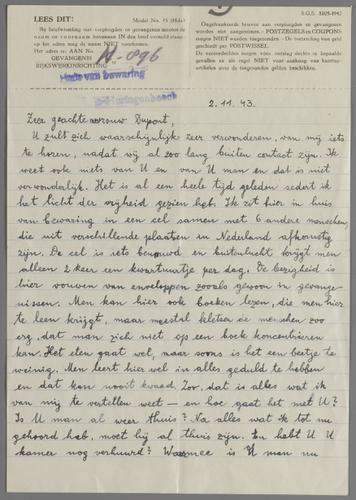 LEES DIT!
Model No. 15 (Hda)
S.G.S. 3205-1942
Bij briefwisseling met verpleegden en gevangenen moeten de
naam en voornaam bovenaan IN den brief vermeld staan:
op het adres mag de naam NIET voorkomen.
Het adres is: AAN No.
H-896
GEVANGENIS
RIJKSWERKINRICHTING
Huis van bewaring
Ongefrankeerde brieven aan verpleegden en gevangenen
worden niet aangenomen — POSTZEGELS en COUPONS
mogen NIET worden toegezonden. — De toezending van geld
geschiedt per POSTWISSEL.
2.11.43.
Zeer geachte mevrouw Dupont,
U zult zich waarschijnlijk zeer verwonderen, van mij iets
te horen, nadat wij al zoo lang buiten contact zijn. Ik
weet ook niets van U en van U man en dat is niet
verwonderlijk. Het is al een heele tijd geleden sedert ik
het licht der vrijheid gezien heb. Ik zit hier in huis
van bewaring in een cel samen met 6 andere menschen,
die uit verschillende plaatsen in Nederland afkomstig
zijn. De cel is iets benauwd en buitenlucht krijgt men
alleen 2 keer een kwartuurtje per dag. De bezigheid is
hier vouwen van enveloppen zooals gewoon in gevange-
nissen. Men kan hier ook boeken lezen, die men hier
te leen krijgt, maar meestal kletsen de menschen zoo
erg, dat man zich niet op een boek koncentrieren
kan. Het eten gaat wel, maar soons is het een beetje te
weinig. Men leert hier wel in alles geduld te hebben
en dat kan nooit kwaad. Zoo, dat is alles wat ik
van mij te vertellen weet — en hoe gaat het met U?
Is U man al weer thuis? Na alles wat ik tot nu
gehoord heb, moet hij al thuis zijn. En hebt U U
kamer nog verhuurd? Waarmee is U man nu